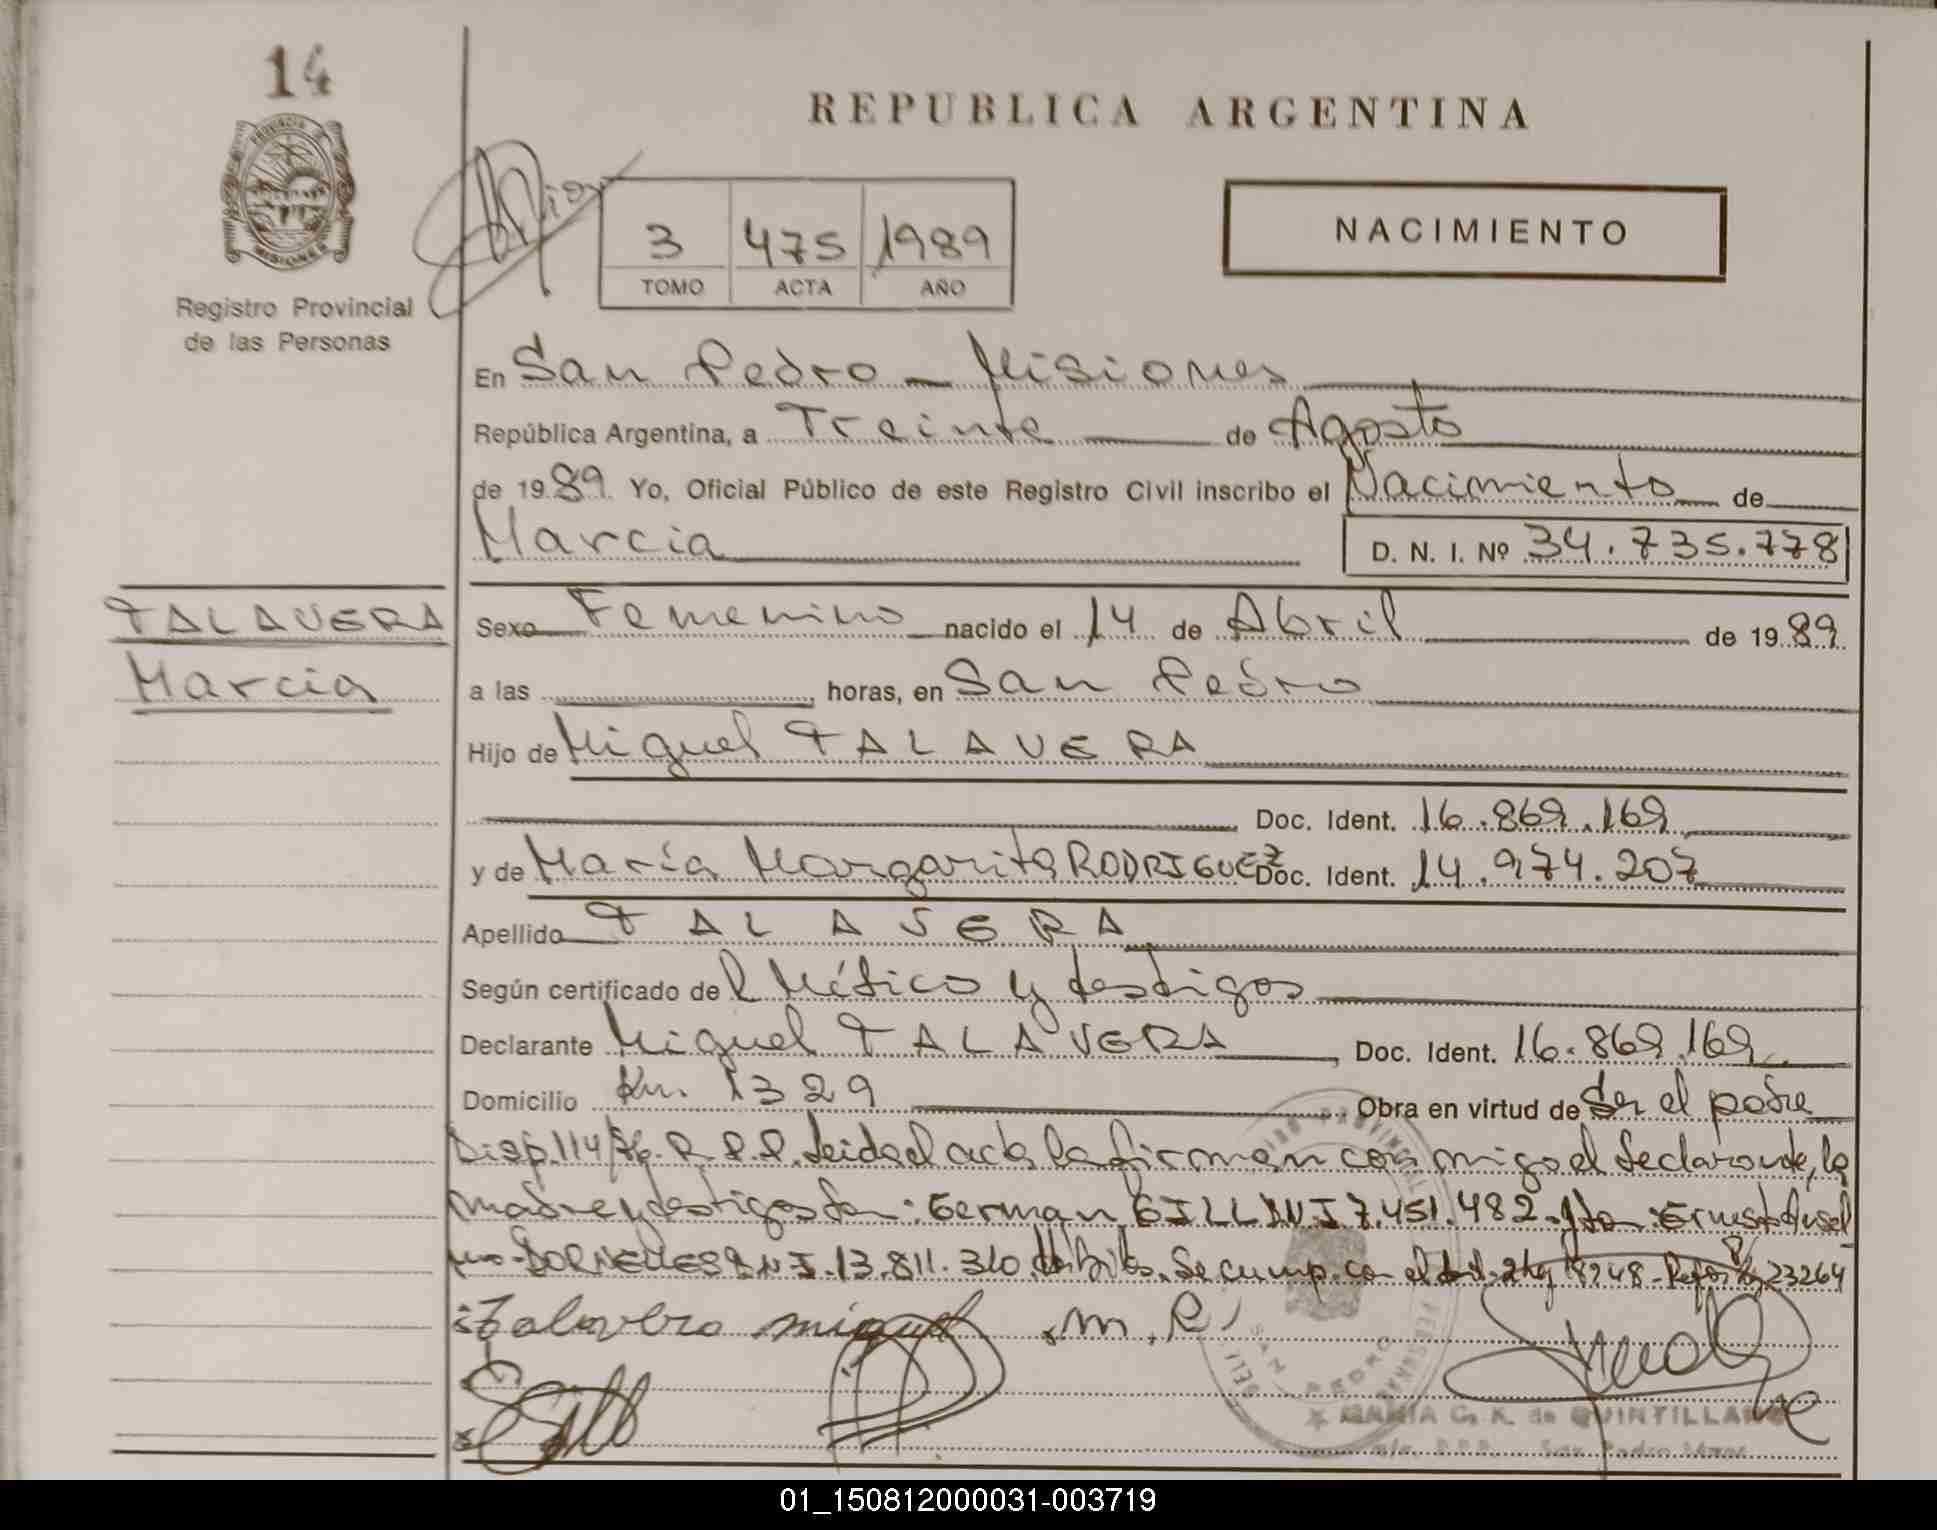 14
REPUBLICA ARGENTINA
PROVINCIA
MISIONES
Registro Provincial
de las Personas
3 475 1989
TOMO ACTA AÑO
NACIMIENTO
En San Pedro - Misiones
República Argentina, a Treinta de Agosto
de 1989. Yo, Oficial Público de este Registro Civil inscribo el Nacimiento de
Marcia D. N. I. Nº 34.735.778
TALAVERA
Marcia
Sexo Femenino nacido el 14 de Abril de 1989.
a las horas, en San Pedro
Hijo de Miguel TALAVERA
Doc. Ident. 16.869.169
y de María Margarita RODRIGUEZ Doc. Ident. 14.974.207
Apellido TALAVERA
Según certificado del Médico y testigos
Declarante Miguel TALAVERA, Doc. Ident. 16.869.169
Domicilio Km. 1329 Obra en virtud de Ser el padre
Disp. 114/76. R.P.P. Leida el acta la firman conmigo el declarante, la
madre y testigos German 7.451.482. Ernesto
DORNELLES D.N.I. 13.811.310. Se cump. con el 18248 - 23264
Talavera miguel . m. R.
SAN PEDRO
MARIA G. K. de QUINTILLA
San Pedro
01_150812000031-003719